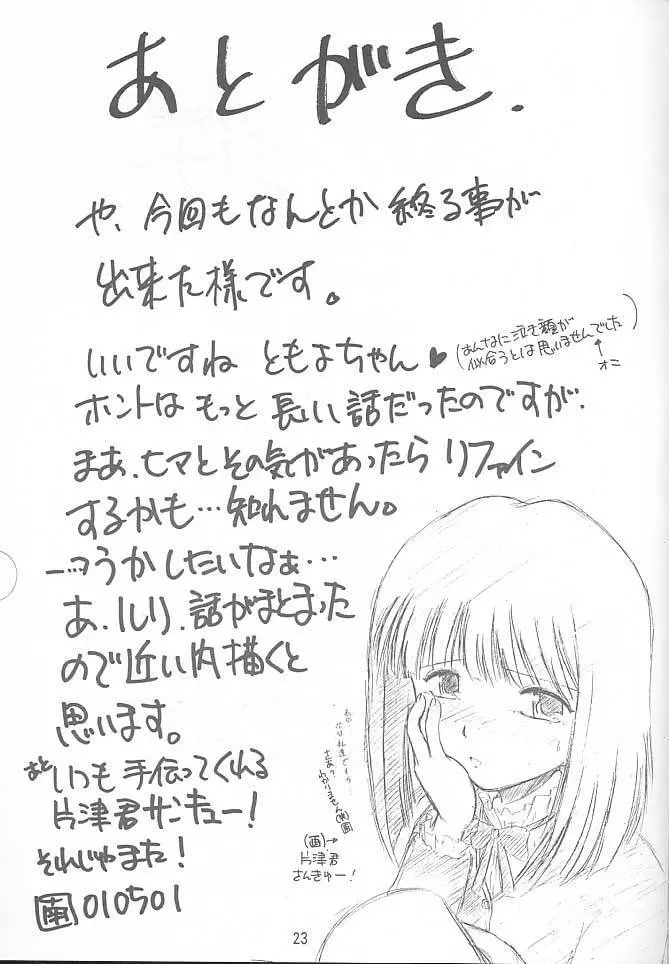 あとがき.
や、今回もなんとか 終る事が
出来た様です。
いいですね ともよちゃん♥
(あんなに泣き顔が
似合うとは思いませんでした)
↑
オニ
ホントは もっと 長い話だったのですが.
まあ.ヒマとその気があったら リファイン
するかも…知れません。
一つうかしたいなぁ…
あ.しり.話がまとまった
ので近い内描くと
思います。
あと いつも 手伝ってくれる
片津君サンキュー!
それじゃまた!
010501
片津君
さんきゅー!
23